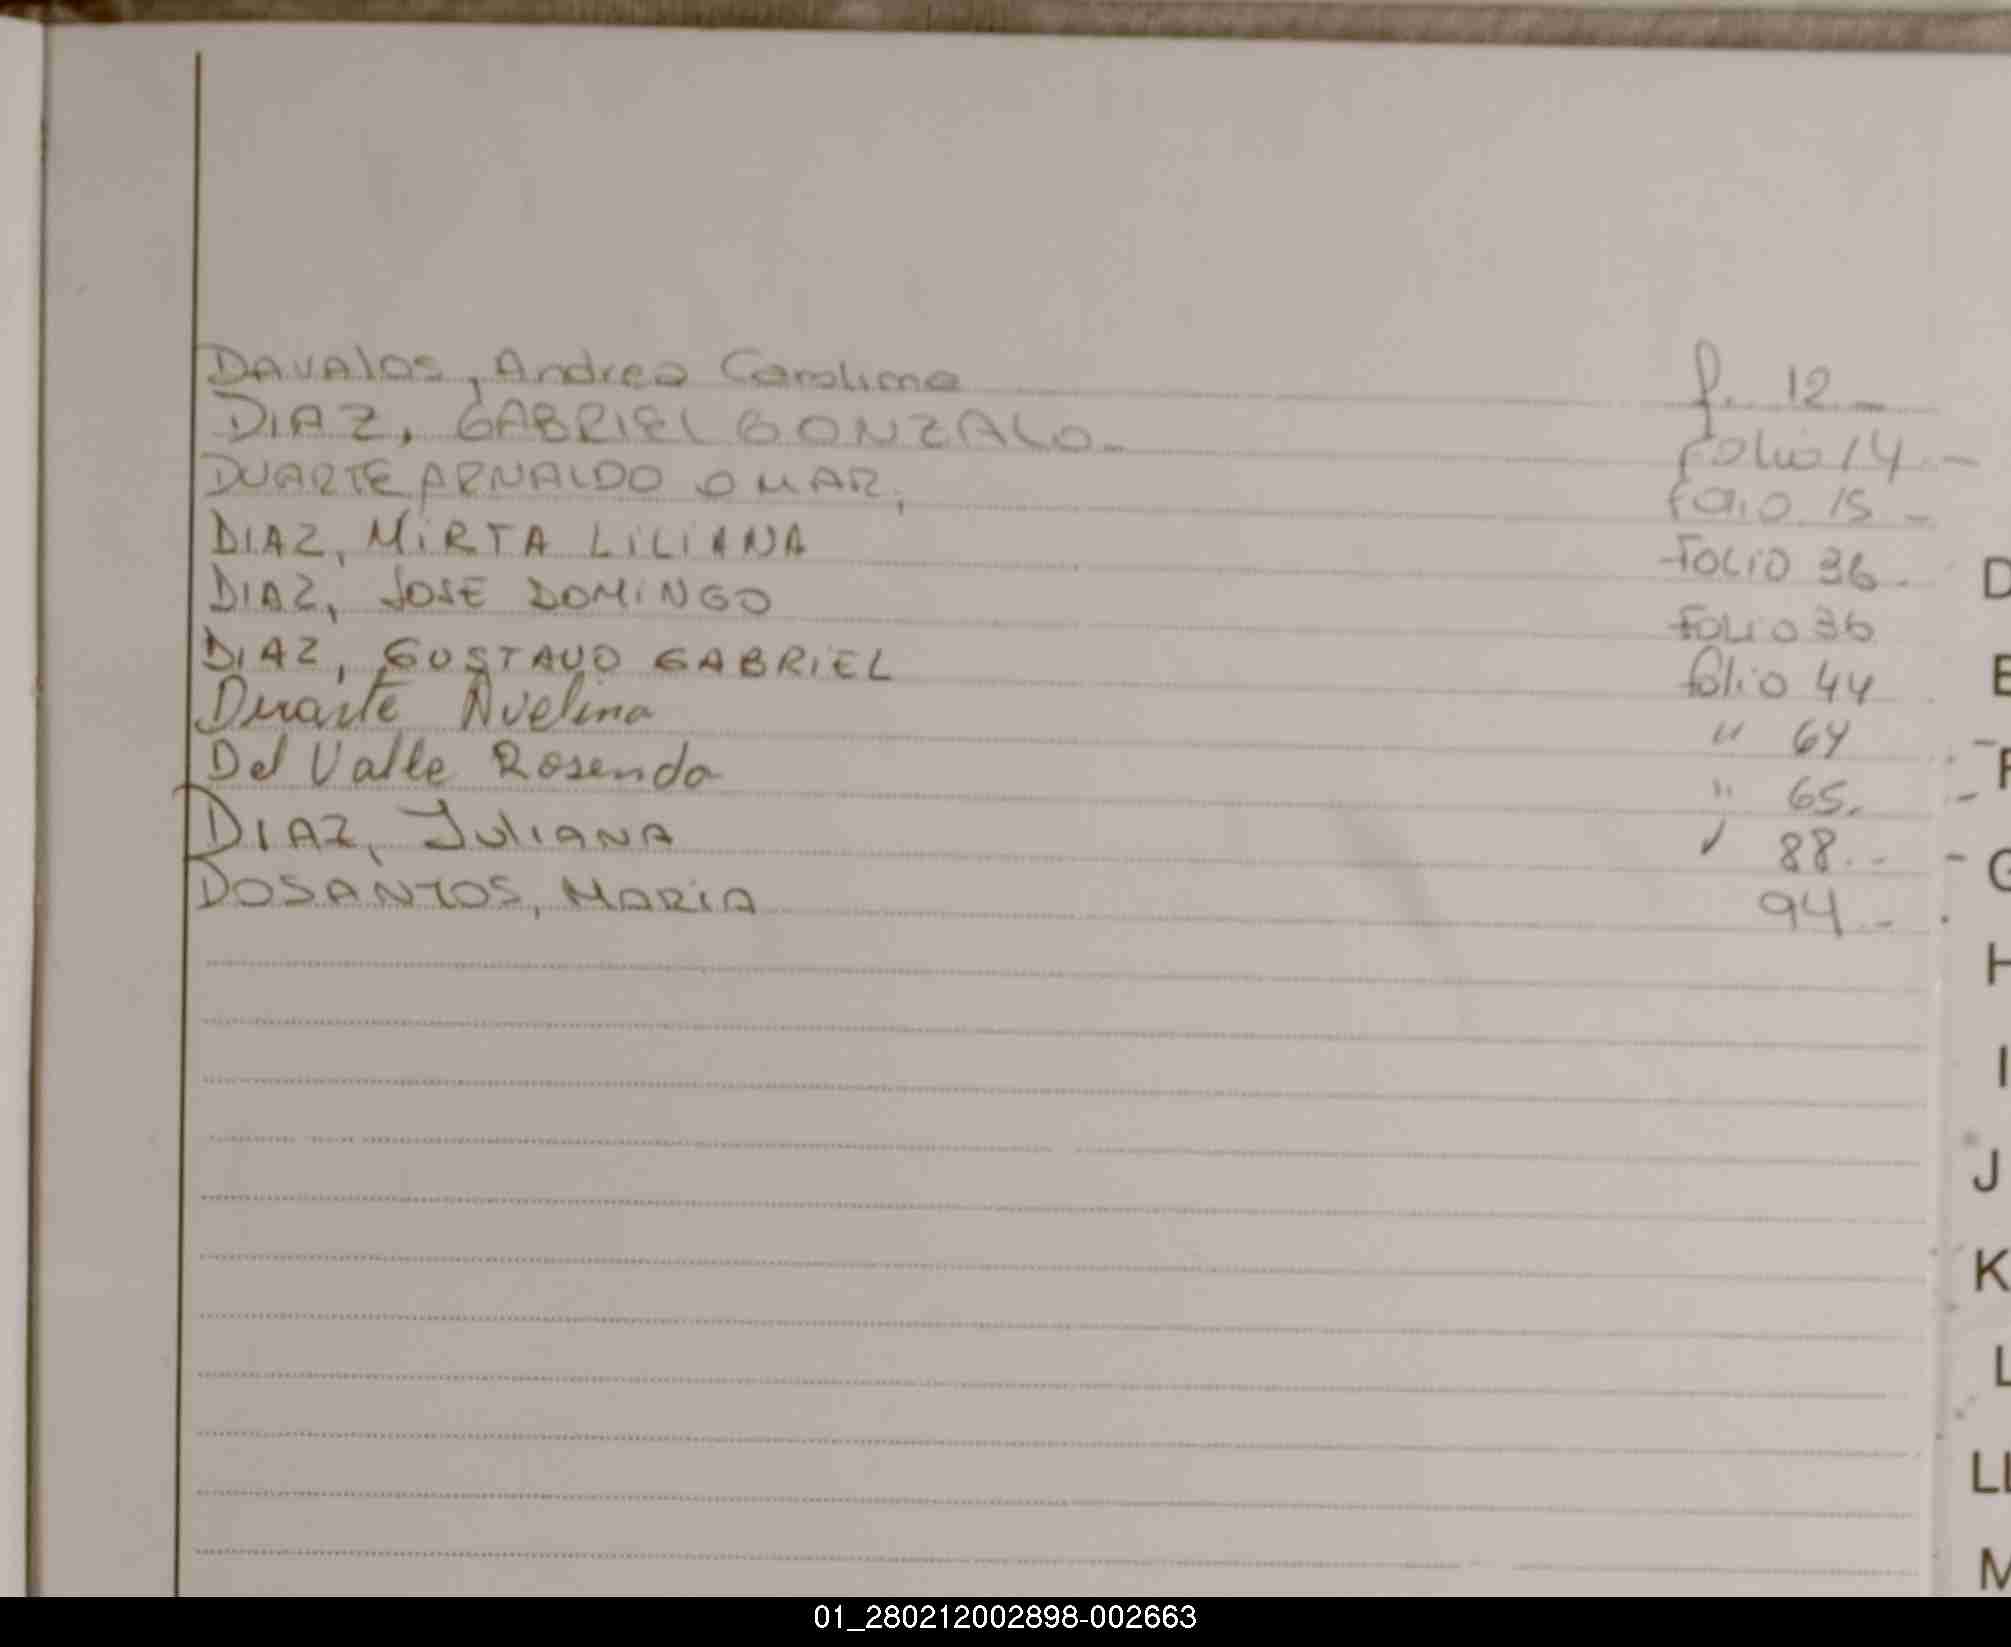 Davalos, Andrea Carolina f. 12
DIAZ, GABRIEL GONZALO. folio 14
DUARTE ARNALDO OMAR, folio 15
DIAZ, MIRTA LILIANA FOLIO 36.
DIAZ, JOSE DOMINGO FOLIO 36
DIAZ, GUSTAVO GABRIEL folio 44
Duarte Avelina " 64
Del Valle Rosenda " 65.
DIAZ, JULIANA " 88.-
DOSANTOS, MARIA 94.-
D
E
F
G
H
I
J
K
L
LL
M
01_280212002898-002663